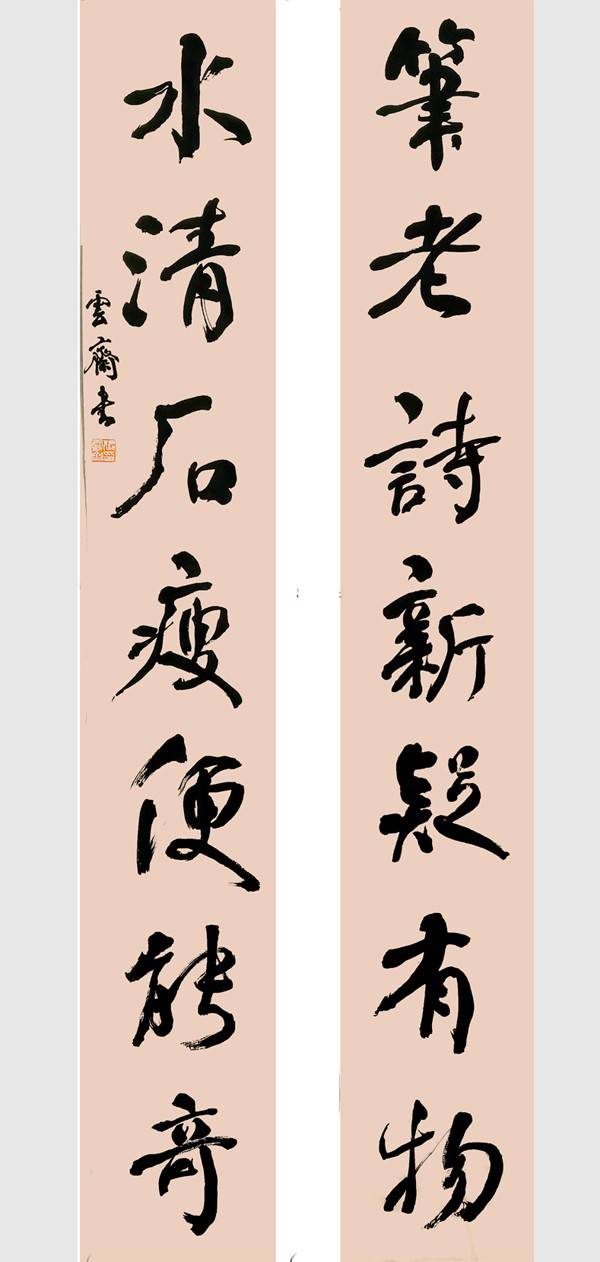 筆老詩新疑有物
水清石瘦便能奇
雲齋書